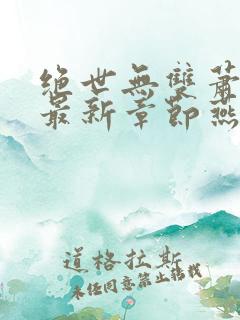 绝世無雙蕭
最新章節燕
道格拉斯
未经同意禁止转载